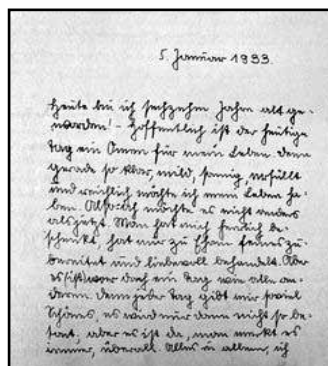 5. Januar 1933.
Heute bin ich sechzehn Jahre alt ge-
worden! - Hoffentlich ist der heutige
Tag ein Omen für mein Leben, denn
gerade so klar, mild, sonnig, erfüllt
und reichlich möchte ich mein Leben ha-
ben. möchte es nicht anders
als jetzt. Man hat mich herrlich be-
schenkt, hat mir zu Essen feines zu-
bereitet und liebevoll behandelt. Aber
es ist doch ein Tag wie alle an-
deren, denn jeder Tag gibt mir soviel
Schönes, es wird nur dann nicht so be-
tont, aber es ist da, man merkt es
immer, überall. Alles in allem, ich